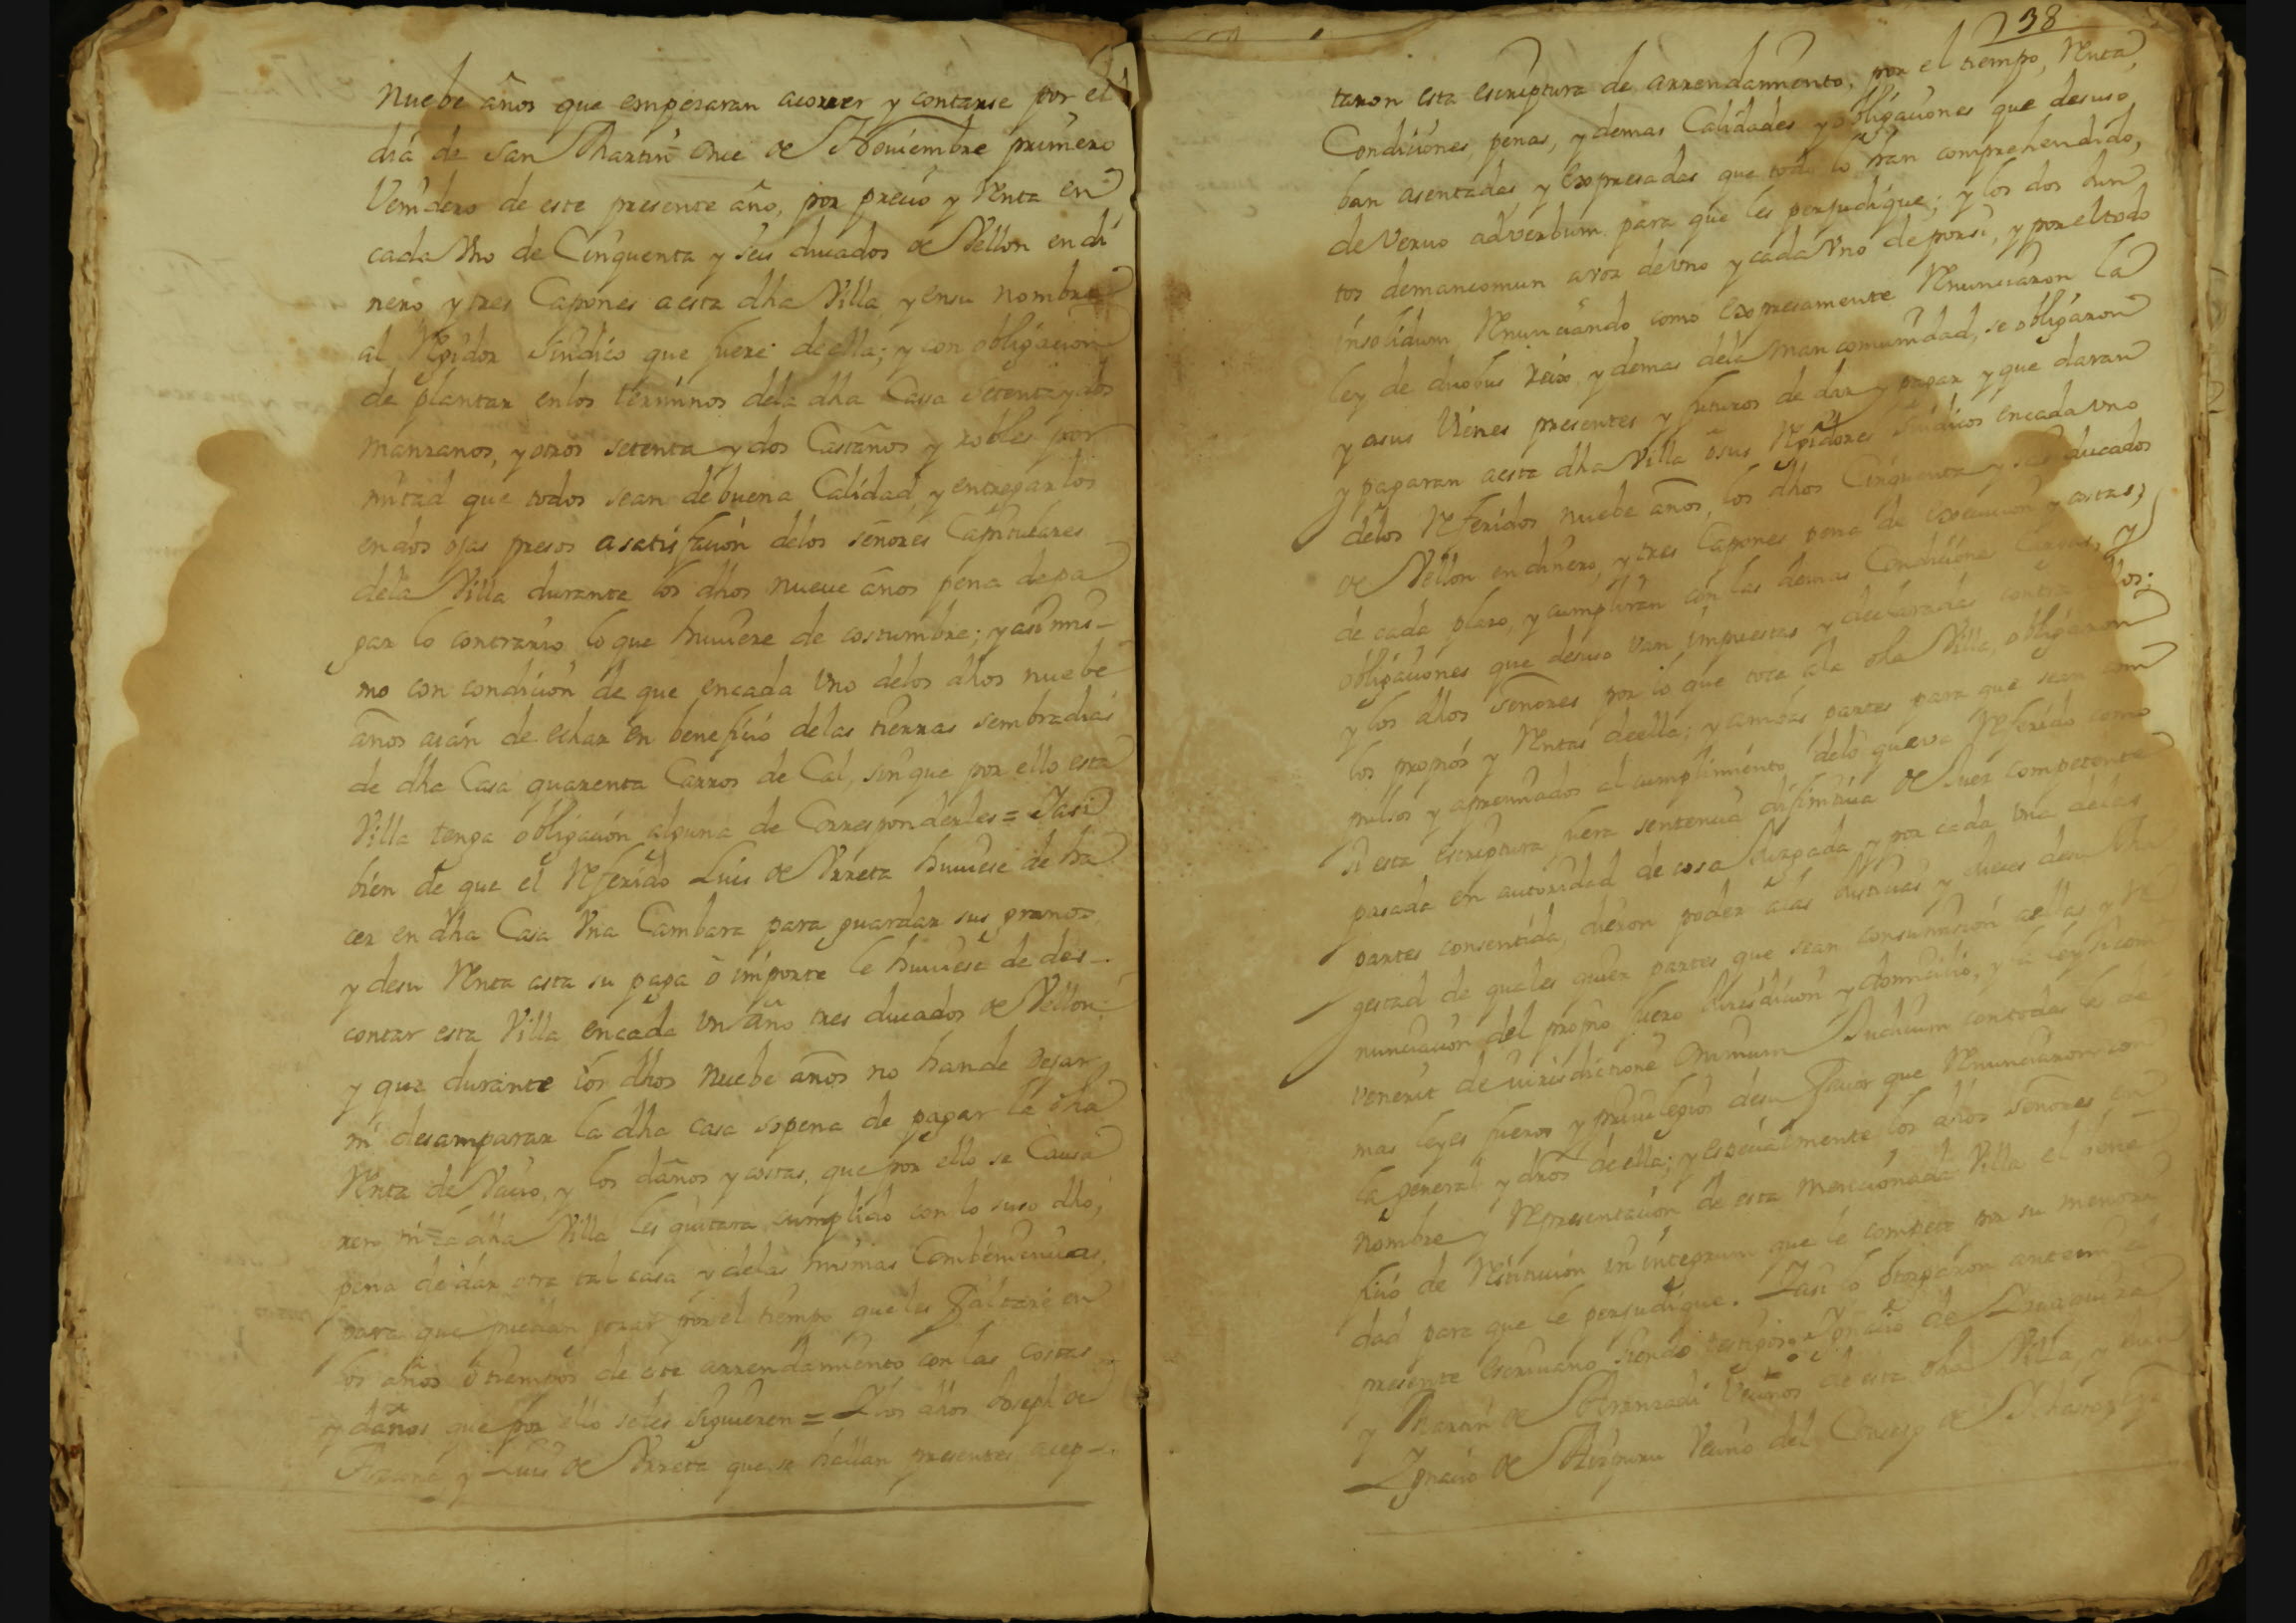 nuebe años que empezaran acorrer y contarse por el
dia de san Martin once de Noviembre primero
Venidero de este presente año, por precio y Renta en
cada Vno de Cinquenta y seis ducados de Vellon en di
nero y tres Capones a esta dha Villa y ensu nombre
al Rejidor sindico que fuere de ella; y con obligacion
de plantar enlos terminos dela dha Casa setenta y dos
manzanos, y otros setenta y dos Castaños y robles por
mitad que todos sean de buena Calidad, y entregarlos
endos ojas presos a satisfacion delos señores Capitulares
dela Villa durante los dhos nueue años pena depa
gar lo contrario lo que huuiere de costumbre; y asi mis-
mo con condicion de que encada Vno delos dhos nuebe
años aian de echar en beneficio delas tierras sembradias
de dha Casa quarenta Carros de Cal, sin que por ello esta
Villa tenga obligacion alguna de Corresponderles = Iasi
bien de que el Referido Luis de Vrreta huuiese de ha
cer en dha Casa Vna Cambara para guardar sus granos
y desu Renta asta su paga o importe le huuiese de des-
contar esta Villa encada Vn año tres ducados de Vellon
y que durante los dhos nuebe años no hande dejar
ni desamparar la dha casa sopena de pagar la dha
Renta de Vacio, y los daños y costas, que por ello se Causa
ren ni la dha Villa les quitara cumplido con lo suso dho;
pena de dar otra tal casa y delas mismas Combeniencias,
para que puedan gozar por el tiempo que les Faltare en
los años o tiempos de este arrendamiento con las costas
y daños que por ello seles siguieren = Ylos dhos Joseph de
y Luis de Vrreta que se hallan presentes acep-

38
taron esta escriptura de arrendamiento, por el tiempo, Renta,
Condiciones, penas, y demas Calidades y obligaciones que desuso
ban asentadas y Expresadas que todo lo han comprehendido,
de Verbo adverbum para que les perjudique; y los dos Jun
tos demancomun avoz deVno y cada Vno deporsi, y por eltodo
insolidum Renunciando como Expresamente Renunciaron la
ley de duobus reix, y demas dela mancomunidad, se obligaron
y asus Vienes presentes y futuros de dar y pagar y que daran
y pagaran a esta dha Villa o sus Rejidores sindicos encada vno
delos Referidos nuebe años, los dhos Cinquenta y seis ducados
de Vellon en dinero, y tres Capones pena de Execucion y costas;
de cada plazo, y cumpliran con las demas Condiciones Cargas, y
obligaciones que desuso van impuestas y declaradas contra ellos;
y los dhos señores por lo que toca ala dha Villa, obligaron
los propios y Rentas de ella; y ambas partes para que sean com
pulsos y apremiados al cumplimiento delo queva Referido como
si esta escriptura fuera sentencia difinitiua de Juez competente
pasada en autoridad de cosa Juzgada y por cada vna delas
partes consentida, dieron poder alas Justicias y Jueces desu Ma
gestad de quales quier partes que sean consumision aellas y re
nunciacion del propio fuero Jurisdicion y domicilio, y la ley si com
venerit de iurisdictione omnium Judicum contodas las de
mas leyes fueros y priuilegios desu Fauor que Renunciaron con
la general y dros de ella; y especialmente los dhos señores en
nombre y Representacion de esta mencionada Villa el bene
ficio de Restitucion in integrum que le compete por su menori
dad para que le perjudique. Iasi lo otorgaron ante mi el
presente escriuano siendo testigos Ygnacio de
y Martin de Aranzadi Vecinos de esta dha Villa, y Juan
Ygnacio de Vecino del Concejo de